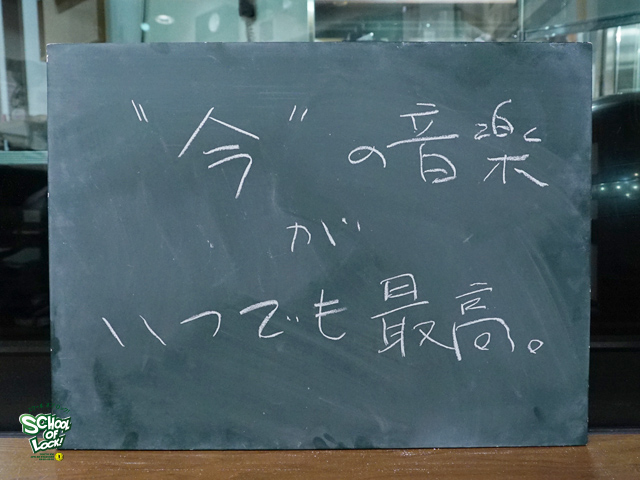 "今"の音楽
が
いつでも最高。
SCHOOL
OF
LOCK!